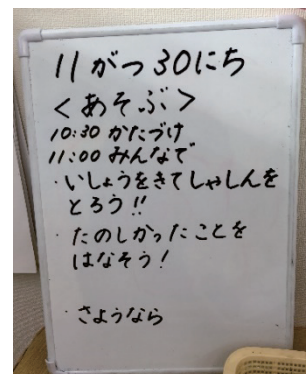 11がつ30にち
<あそぶ>
10:30 かたづけ
11:00 みんなで
・いしょうをきてしゃしんを
とろう!!
・たのしかったことを
はなそう!
・さようなら